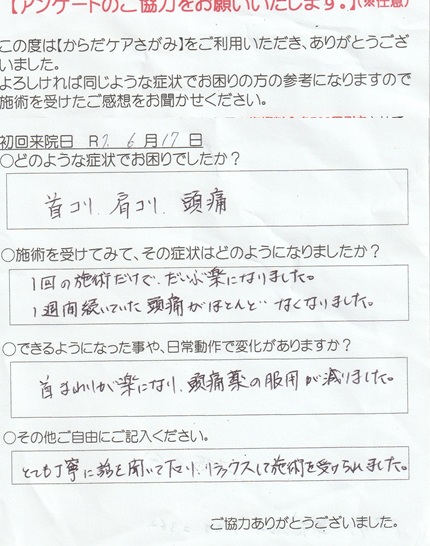 【アンケートのご協力をお願いいたします。】(※任意)
この度は【からだケアさがみ】をご利用いただき、ありがとうござ
いました。
よろしければ同じような症状でお困りの方の参考になりますので
施術を受けたご感想をお聞かせください。
初回来院日 R7. 6月17日
○どのような症状でお困りでしたか?
首コリ、肩コリ、頭痛
○施術を受けてみて、その症状はどのようになりましたか?
1回の施術だけで、だいぶ楽になりました。
1週間続いていた頭痛がほとんどなくなりました。
○できるようになった事や、日常動作で変化がありますか?
首まわりが楽になり、頭痛薬の服用が減りました。
○その他ご自由にご記入ください。
とても丁寧に話を聞いて下さり、リラックスして施術を受けられました。
ご協力ありがとうございました。